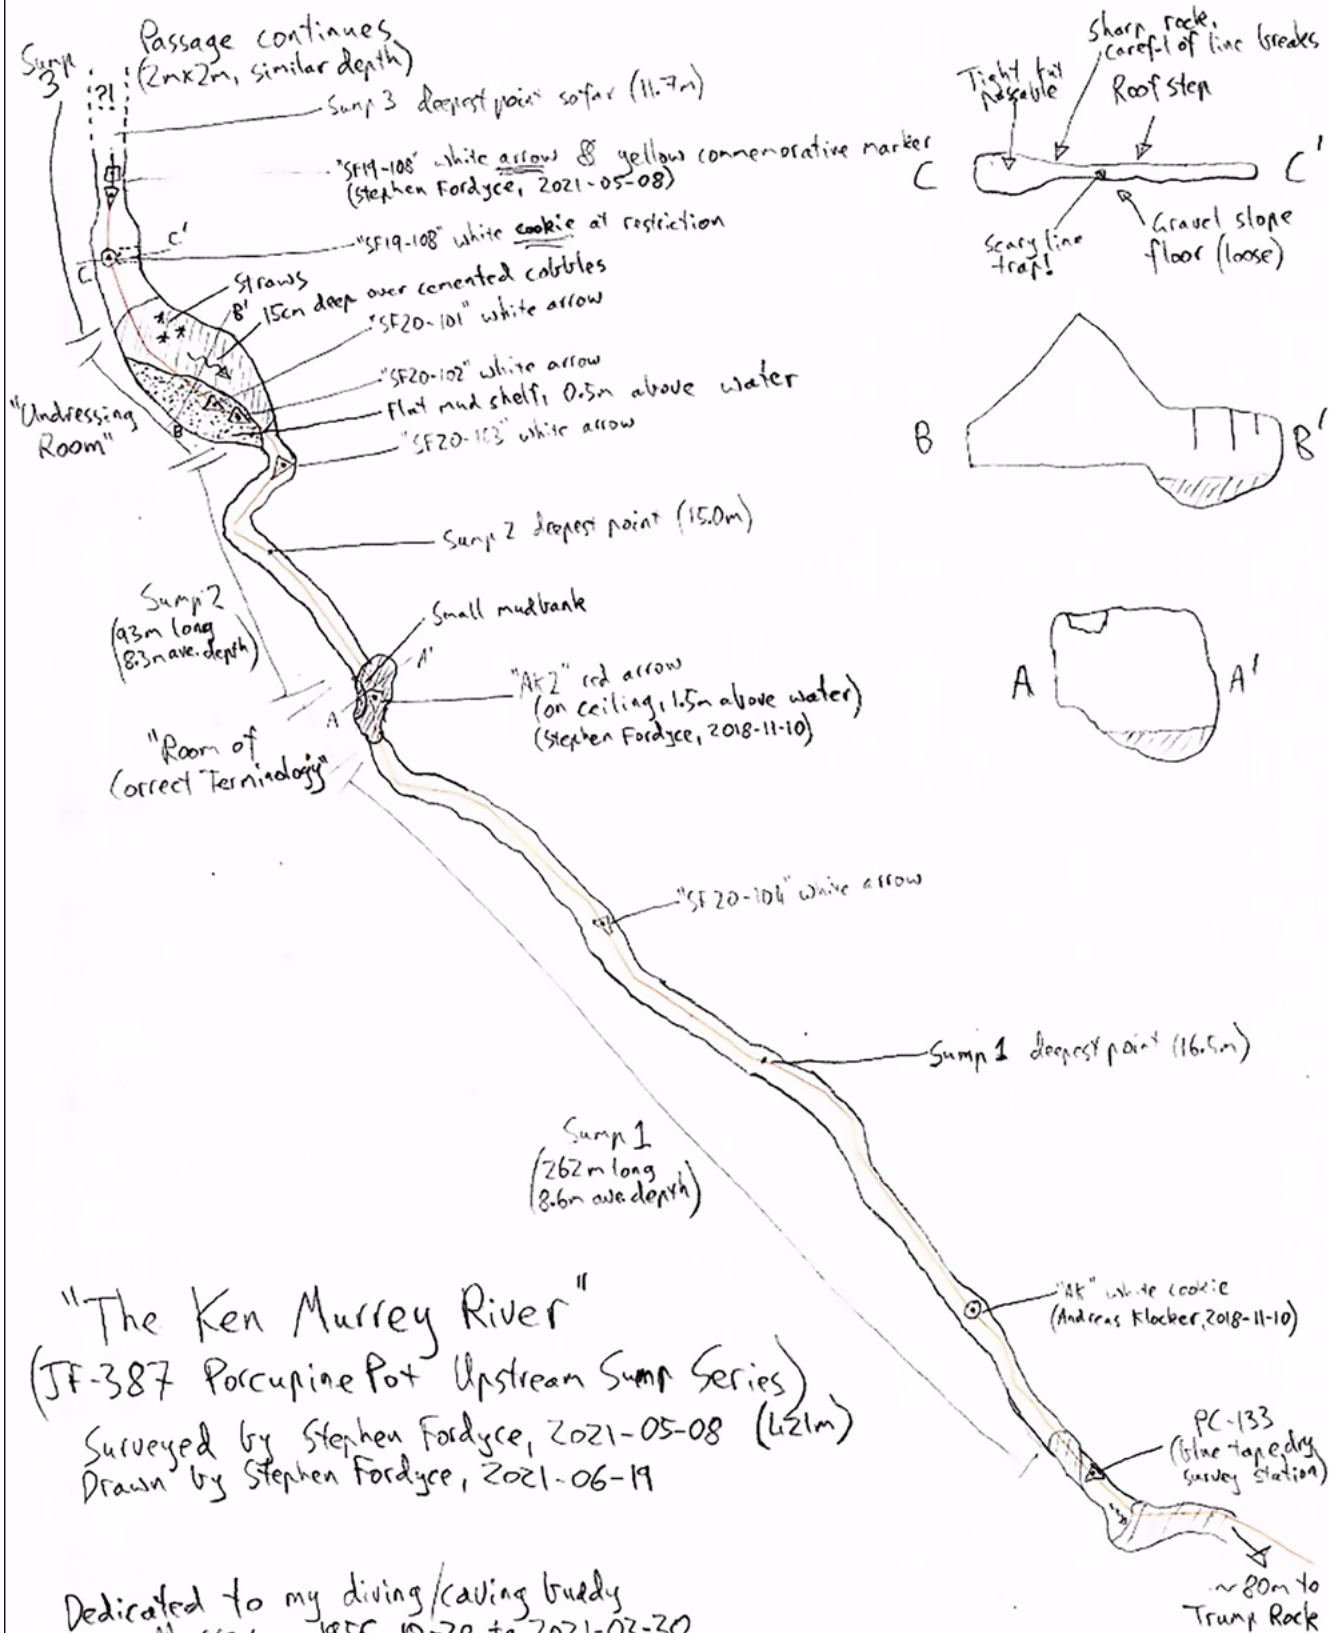 Sump
3
Passage continues
(2mx2m, similar depth)
?!
Sump 3 deepest point so far (11.7m)
"SF19-108" white arrow & yellow commemorative marker
(Stephen Fordyce, 2021-05-08)
"SF19-108" white cookie at restriction
C'
C
Straws
B'
15cm deep over cemented cobbles
"SF20-101" white arrow
"SF20-102" white arrow
Flat mud shelf, 0.5m above water
"SF20-103" white arrow
"Undressing
Room"
B
Sump 2 deepest point (15.0m)
Sump 2
(93m long
8.3m ave. depth)
Small mudbank
A'
"AK2" red arrow
(on ceiling, 1.5m above water)
(Stephen Fordyce, 2018-11-10)
A
"Room of
Correct Terminology"
"SF20-104" white arrow
Sump 1 deepest point (16.5m)
Sump 1
(262m long
8.6m ave. depth)
"AK" white cookie
(Andreas Klocker, 2018-11-10)
PC-133
(blue tape, dry
survey station)
~80m to
Trump Rock
Sharp rock,
careful of line breaks
Tight but
passable
Roof step
C
C'
Scary line
trap!
Gravel slope
floor (loose)
B
B'
A
A'
"The Ken Murrey River"
(JF-387 Porcupine Pot Upstream Sump Series)
Surveyed by Stephen Fordyce, 2021-05-08 (421m)
Drawn by Stephen Fordyce, 2021-06-19
Dedicated to my diving/caving buddy
to 2021-03-30